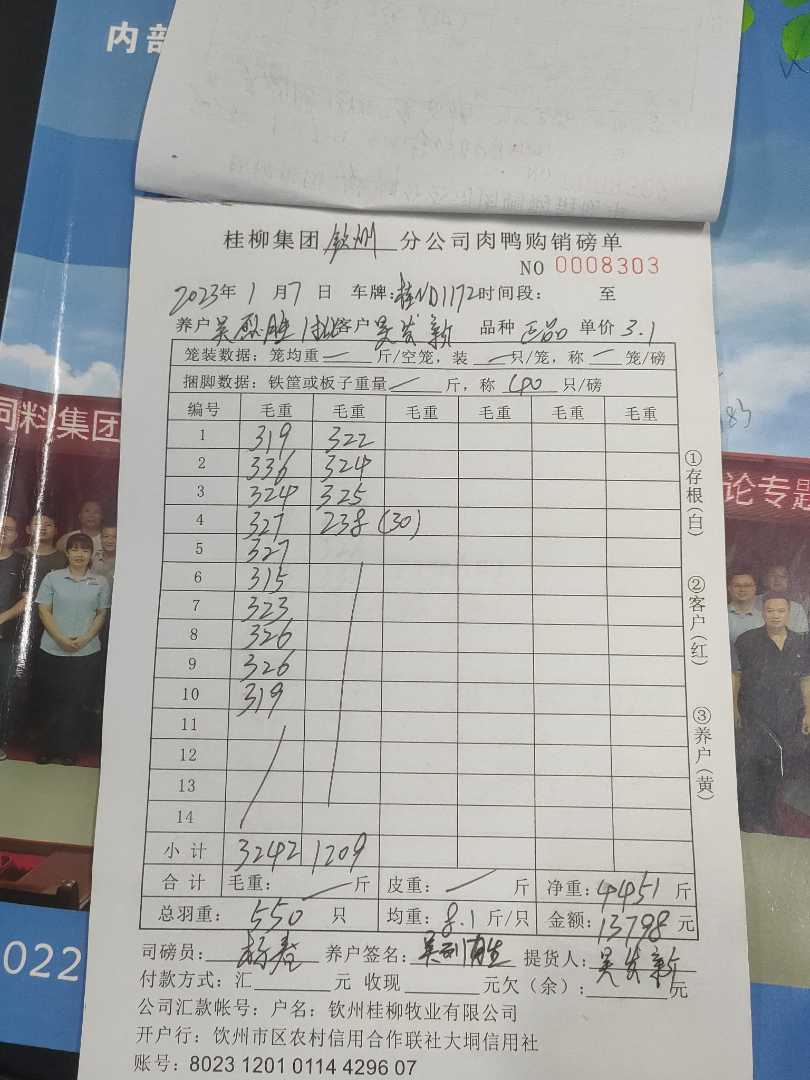 内部
桂柳集团 钦州 分公司肉鸭购销磅单
NO 0008303
2023年 1 月 7 日 车牌: 桂ND1172 时间段: 至
养户 吴 胜 客户 吴发新 品种 正品 单价 3.1
笼装数据: 笼均重 — 斤/空笼, 装 — 只/笼, 称 — 笼/磅
捆脚数据: 铁筐或板子重量 — 斤, 称 40 只/磅
编号 毛重 毛重 毛重 毛重 毛重 毛重
1 319 322
2 336 324
3 324 325
4 327 238 (30)
5 327
6 315
7 323
8 326
9 326
10 319
11
12
13
14
小计 3242 1209
合计 毛重: — 斤 皮重: — 斤 净重: 4451 斤
总羽重: 550 只 均重: 8.1 斤/只 金额: 13798 元
司磅员: 养户签名: 吴 提货人: 吴发新
付款方式: 汇 元 收现 元欠(余): 元
公司汇款帐号: 户名: 钦州桂柳牧业有限公司
开户行: 钦州市区农村信用合作联社大垌信用社
账号: 8023 1201 0114 4296 07
①存根(白)
②客户(红)
③养户(黄)
饲料集团
论专题
022